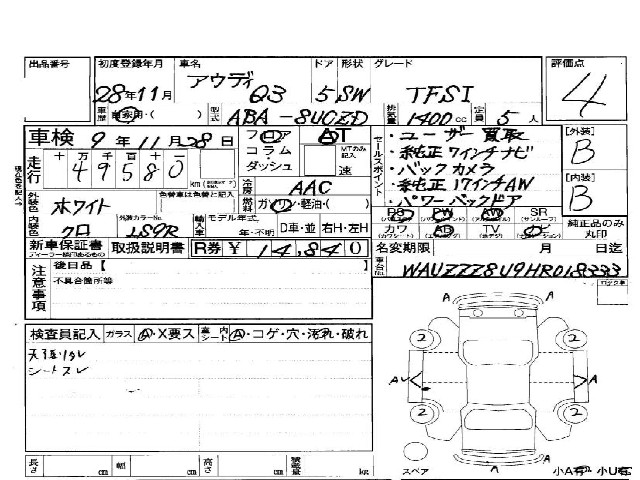 出品番号 初度登録年月 車名 ドア 形状 グレード 評価点
28年11月 アウディ Q3 5 SW TFSI 4
車歴 自家用・( ) 型式 ABA-8UCZD 排気量 1400cc 定員 5人
車検 9年11月28日 フロア AT ・ユーザー買取 [外装]
走行 十万千百十一 コラム・ダッシュ MTのみ記入 速 セールスポイント ・純正7インチナビ B
49580 km ・バックカメラ
冷房 AAC ・純正17インチAW [内装]
外装色 ホワイト 色替車は色替と記入 燃料 ガソリン・軽油・( ) ・パワーバックドア B
内装色 クロ 外装カラーNo. LS9R 輸入車 モデル年式 年・不明 D車・並 右H・左H
PS PW AW SR (サンルーフ) 純正品のみ丸印
カワ AB TV ナビ
新車保証書 取扱説明書 R券 ¥ 14,840 名変期限 月 日迄
注意事項 後日品【 】 車台No. WAUZZZ8U9HR018333
不具合箇所等
検査員記入 ガラス A・X要ス 車内シート A・コゲ・穴・汚れ・破れ
シートスレ
A
2 2
A A A
2 2
A
長さ cm 幅 cm 高さ cm 積載量 kg スペア 小A有 小U有